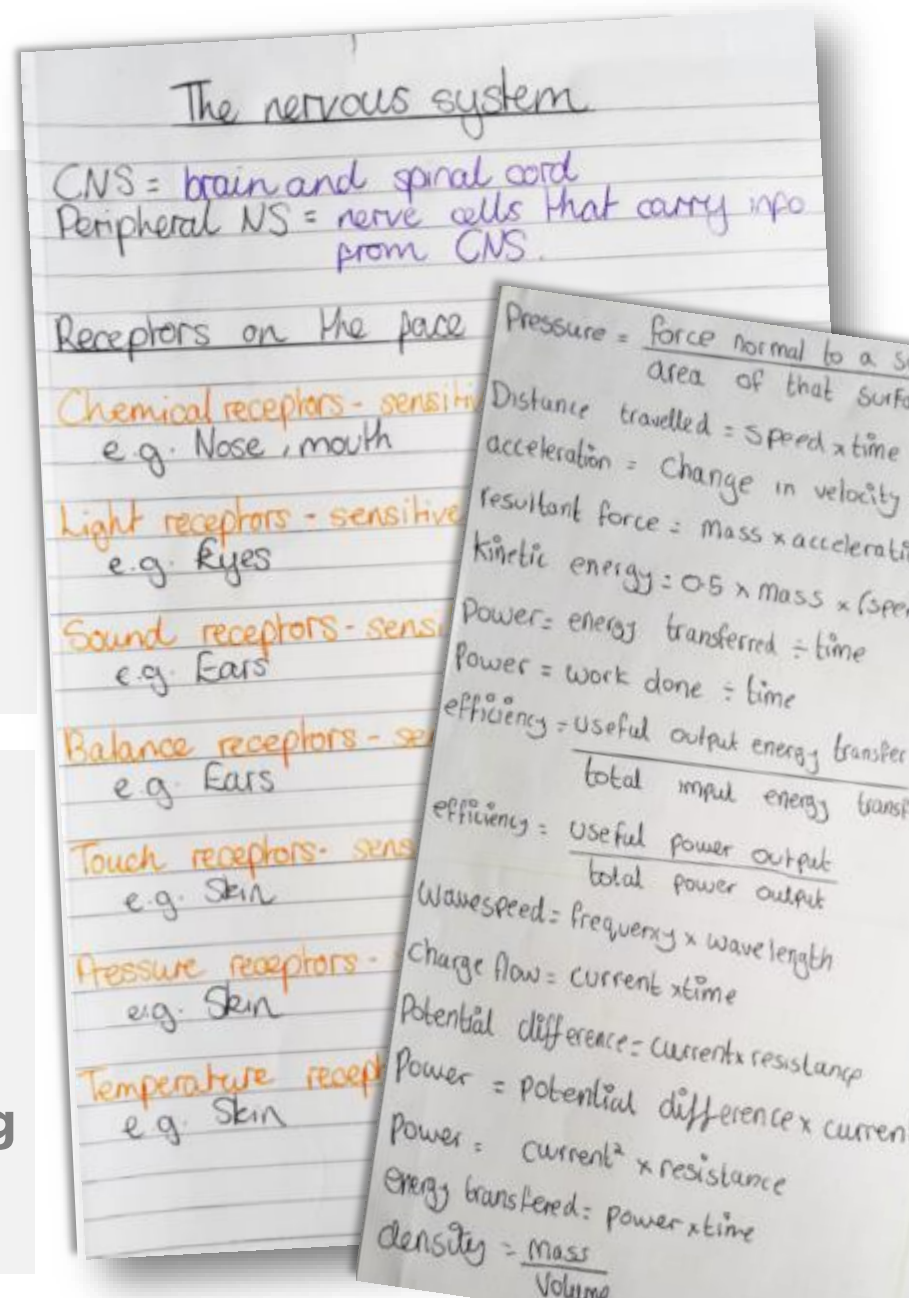 The nervous system
CNS = brain and spinal cord
Peripheral NS = nerve cells that carry info
from CNS.
Receptors on the face
Chemical receptors - sensitiv
e.g. Nose, mouth
Light receptors - sensitive
e.g. Eyes
Sound receptors - sensi
e.g. Ears
Balance receptors - se
e.g. Ears
Touch receptors - sens
e.g. Skin
Pressure receptors -
e.g. Skin
Temperature recept
e.g. Skin
Pressure = force normal to a su
area of that surfa
Distance travelled = speed x time
acceleration = Change in velocity
resultant force = mass x accelerati
Kinetic energy = 0.5 x mass x (spee
Power = energy transferred ÷ time
Power = work done ÷ time
efficiency = useful output energy transfer
total input energy transf
efficiency = useful power output
total power output
Wavespeed = frequency x wavelength
Charge flow = current x time
Potential difference = current x resistance
Power = potential difference x curren
Power = current² x resistance
energy transfered = power x time
density = mass
Volume
g